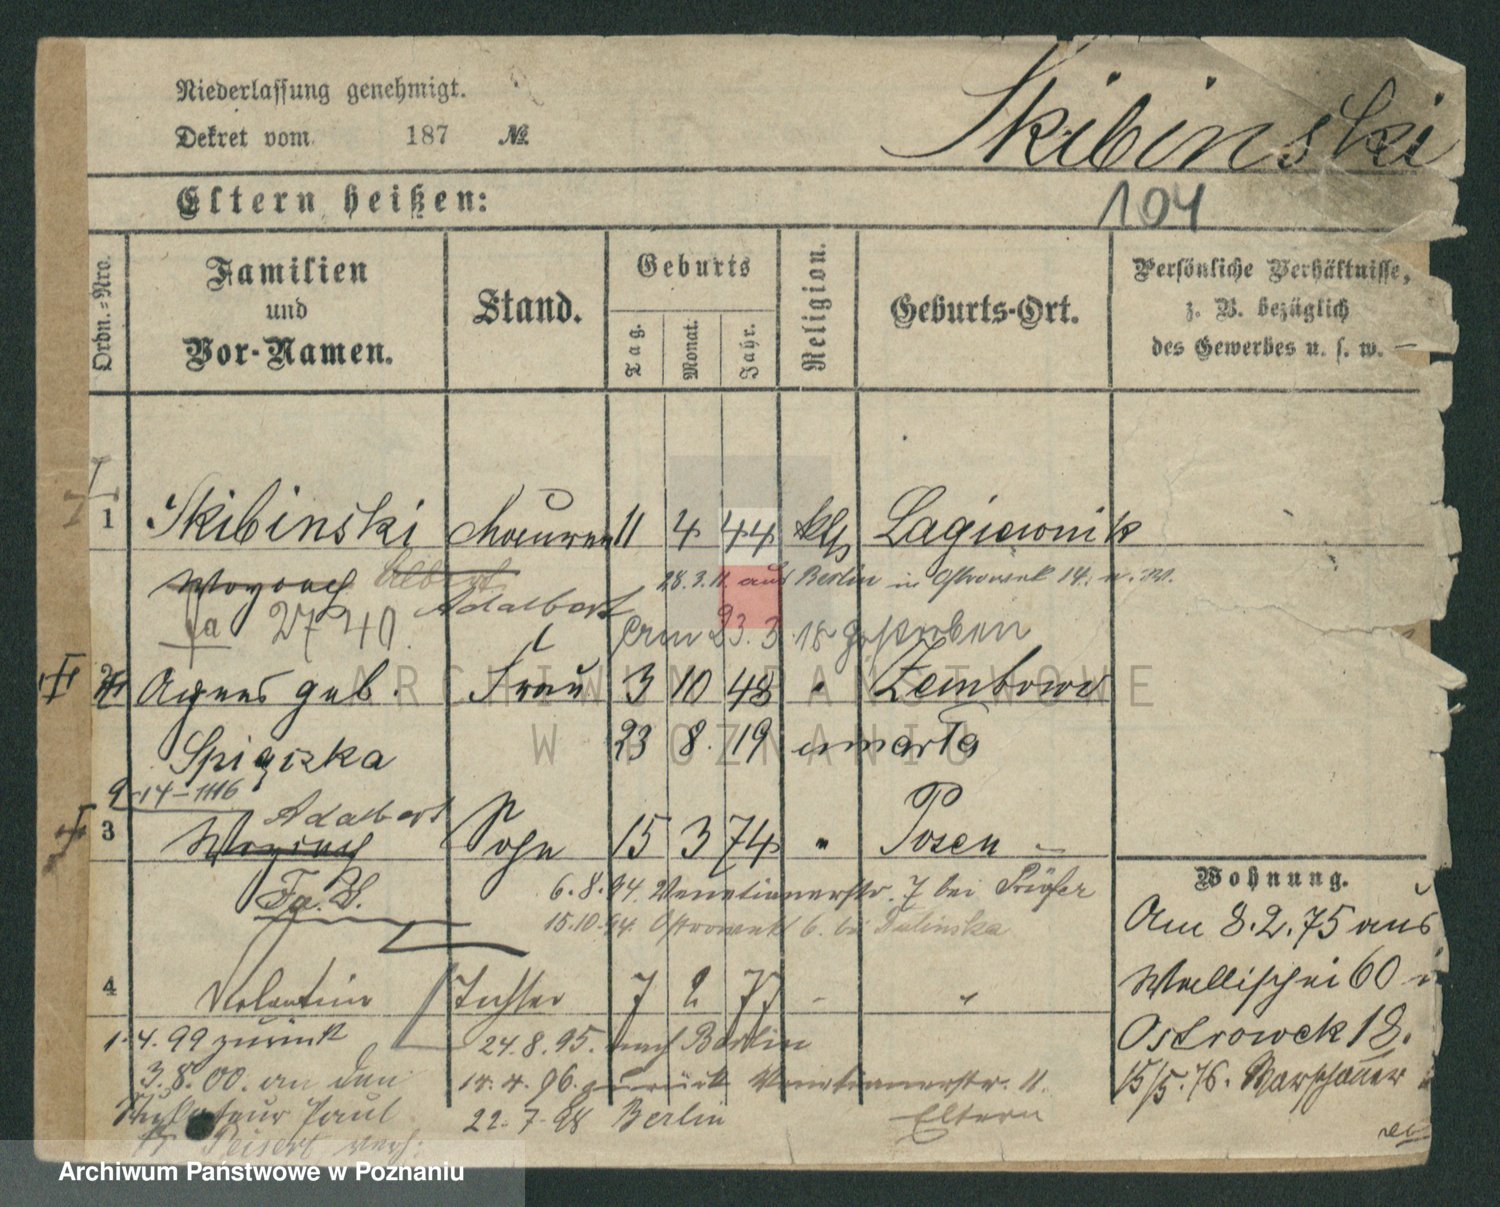 Niederlassung genehmigt.
Dekret vom 187 №
Skibinski
Eltern heißen:
104
Ordn.=Nro.
Familien und Vor-Namen.
Stand.
Geburts
Tag.
Monat.
Jahr.
Religion.
Geburts-Ort.
Persönliche Verhältnisse,
z. B. bezüglich
des Gewerbes u. s. w.
1 Skibinski Maurer 11 4 44 kth Lagiewnik
Woyciech Albert 28.3.11. aus Berlin in Ostrowek 14.
Adalbert
fa 27 40. am 23.3.18 gestorben
2 Agnes geb. Frau 3 10 48 " Zembowo
23 8. 19 umarła
9-14-1116
Adalbert
3 Woyciech Sohn 15 3 74 " Posen
Fa. 6.8.94. Venetianerstr. 7 bei
15.10.94. Ostrowek 6. bei
4 Valentine Tochter 7 2 77 - "
1.4.99 zurück 24.8.95. nach Berlin
3.8.00. an den 14.4.96. zurück Venetianerstr. 11.
Paul 22.7.98 Berlin Eltern
Wohnung.
Am 8.2.75 aus
Wallischei 60
Ostrowek 18.
15/5.76. Warschauer
ARCHIWUM PAŃSTWOWE
W POZNANIU
Archiwum Państwowe w Poznaniu